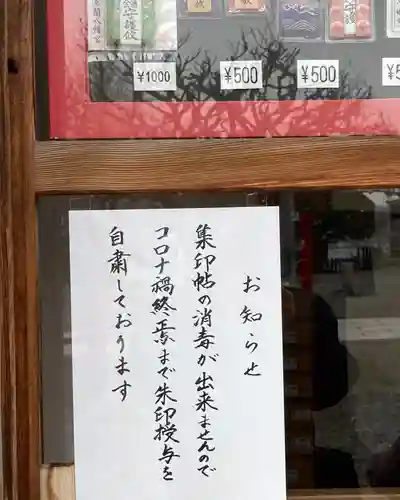 ¥1000
¥500
¥500
¥5
お知らせ
集印帖の消毒が出来ませんので
コロナ禍終焉まで朱印授与を
自粛しております